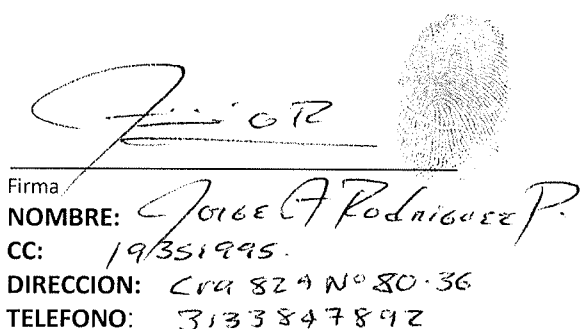 Firma
NOMBRE: Jorge A Rodriguez P.
CC: 19351995.
DIRECCION: Cra 82A Nº 80-36
TELEFONO: 3133847892